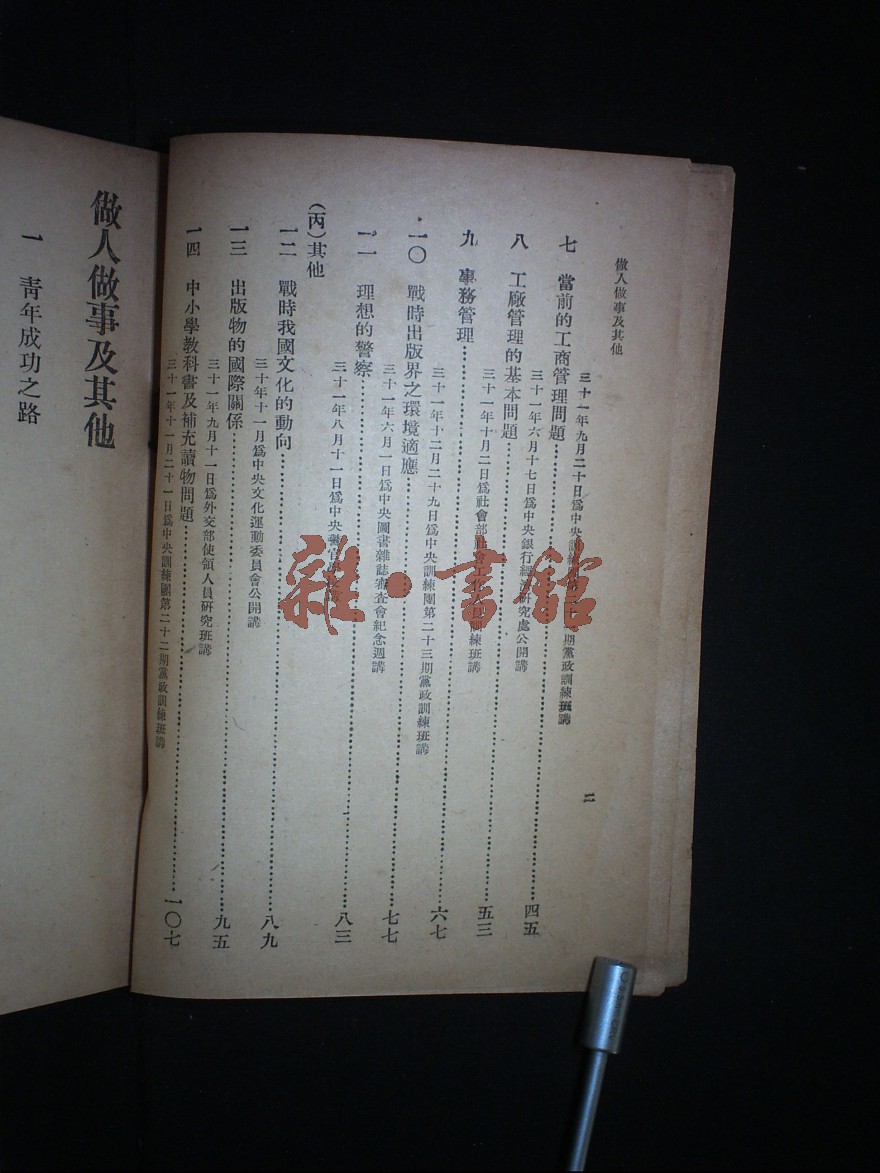 做人做事及其他
二
七 當前的工商管理問題……四五
三十一年九月二十日爲中央訓練 第二十 期黨政訓練班講
八 工廠管理的基本問題……五三
三十一年六月十七日爲中央銀行經濟研究處公開講
九 事務管理……六七
三十一年十月二日爲社會部 訓練班講
一〇 戰時出版界之環境適應……七七
三十一年十二月二十九日爲中央訓練團第二十三期黨政訓練班講
一一 理想的警察……八三
三十一年六月一日爲中央圖書雜誌審查會紀念週講
三十一年八月十一日爲中央警官
(丙)其他
一二 戰時我國文化的動向……八九
三十年十一月爲中央文化運動委員會公開講
一三 出版物的國際關係……九五
三十一年九月十一日爲外交部使領人員研究班講
一四 中小學教科書及補充讀物問題……一〇七
三十一年十一月二十一日爲中央訓練團第二十二期黨政訓練班講
做人做事及其他
一 靑年成功之路
雜·書館